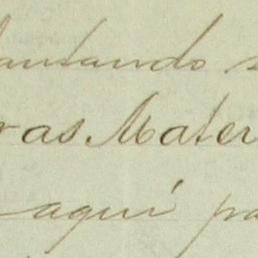 antando
ras Mater
aquí pa